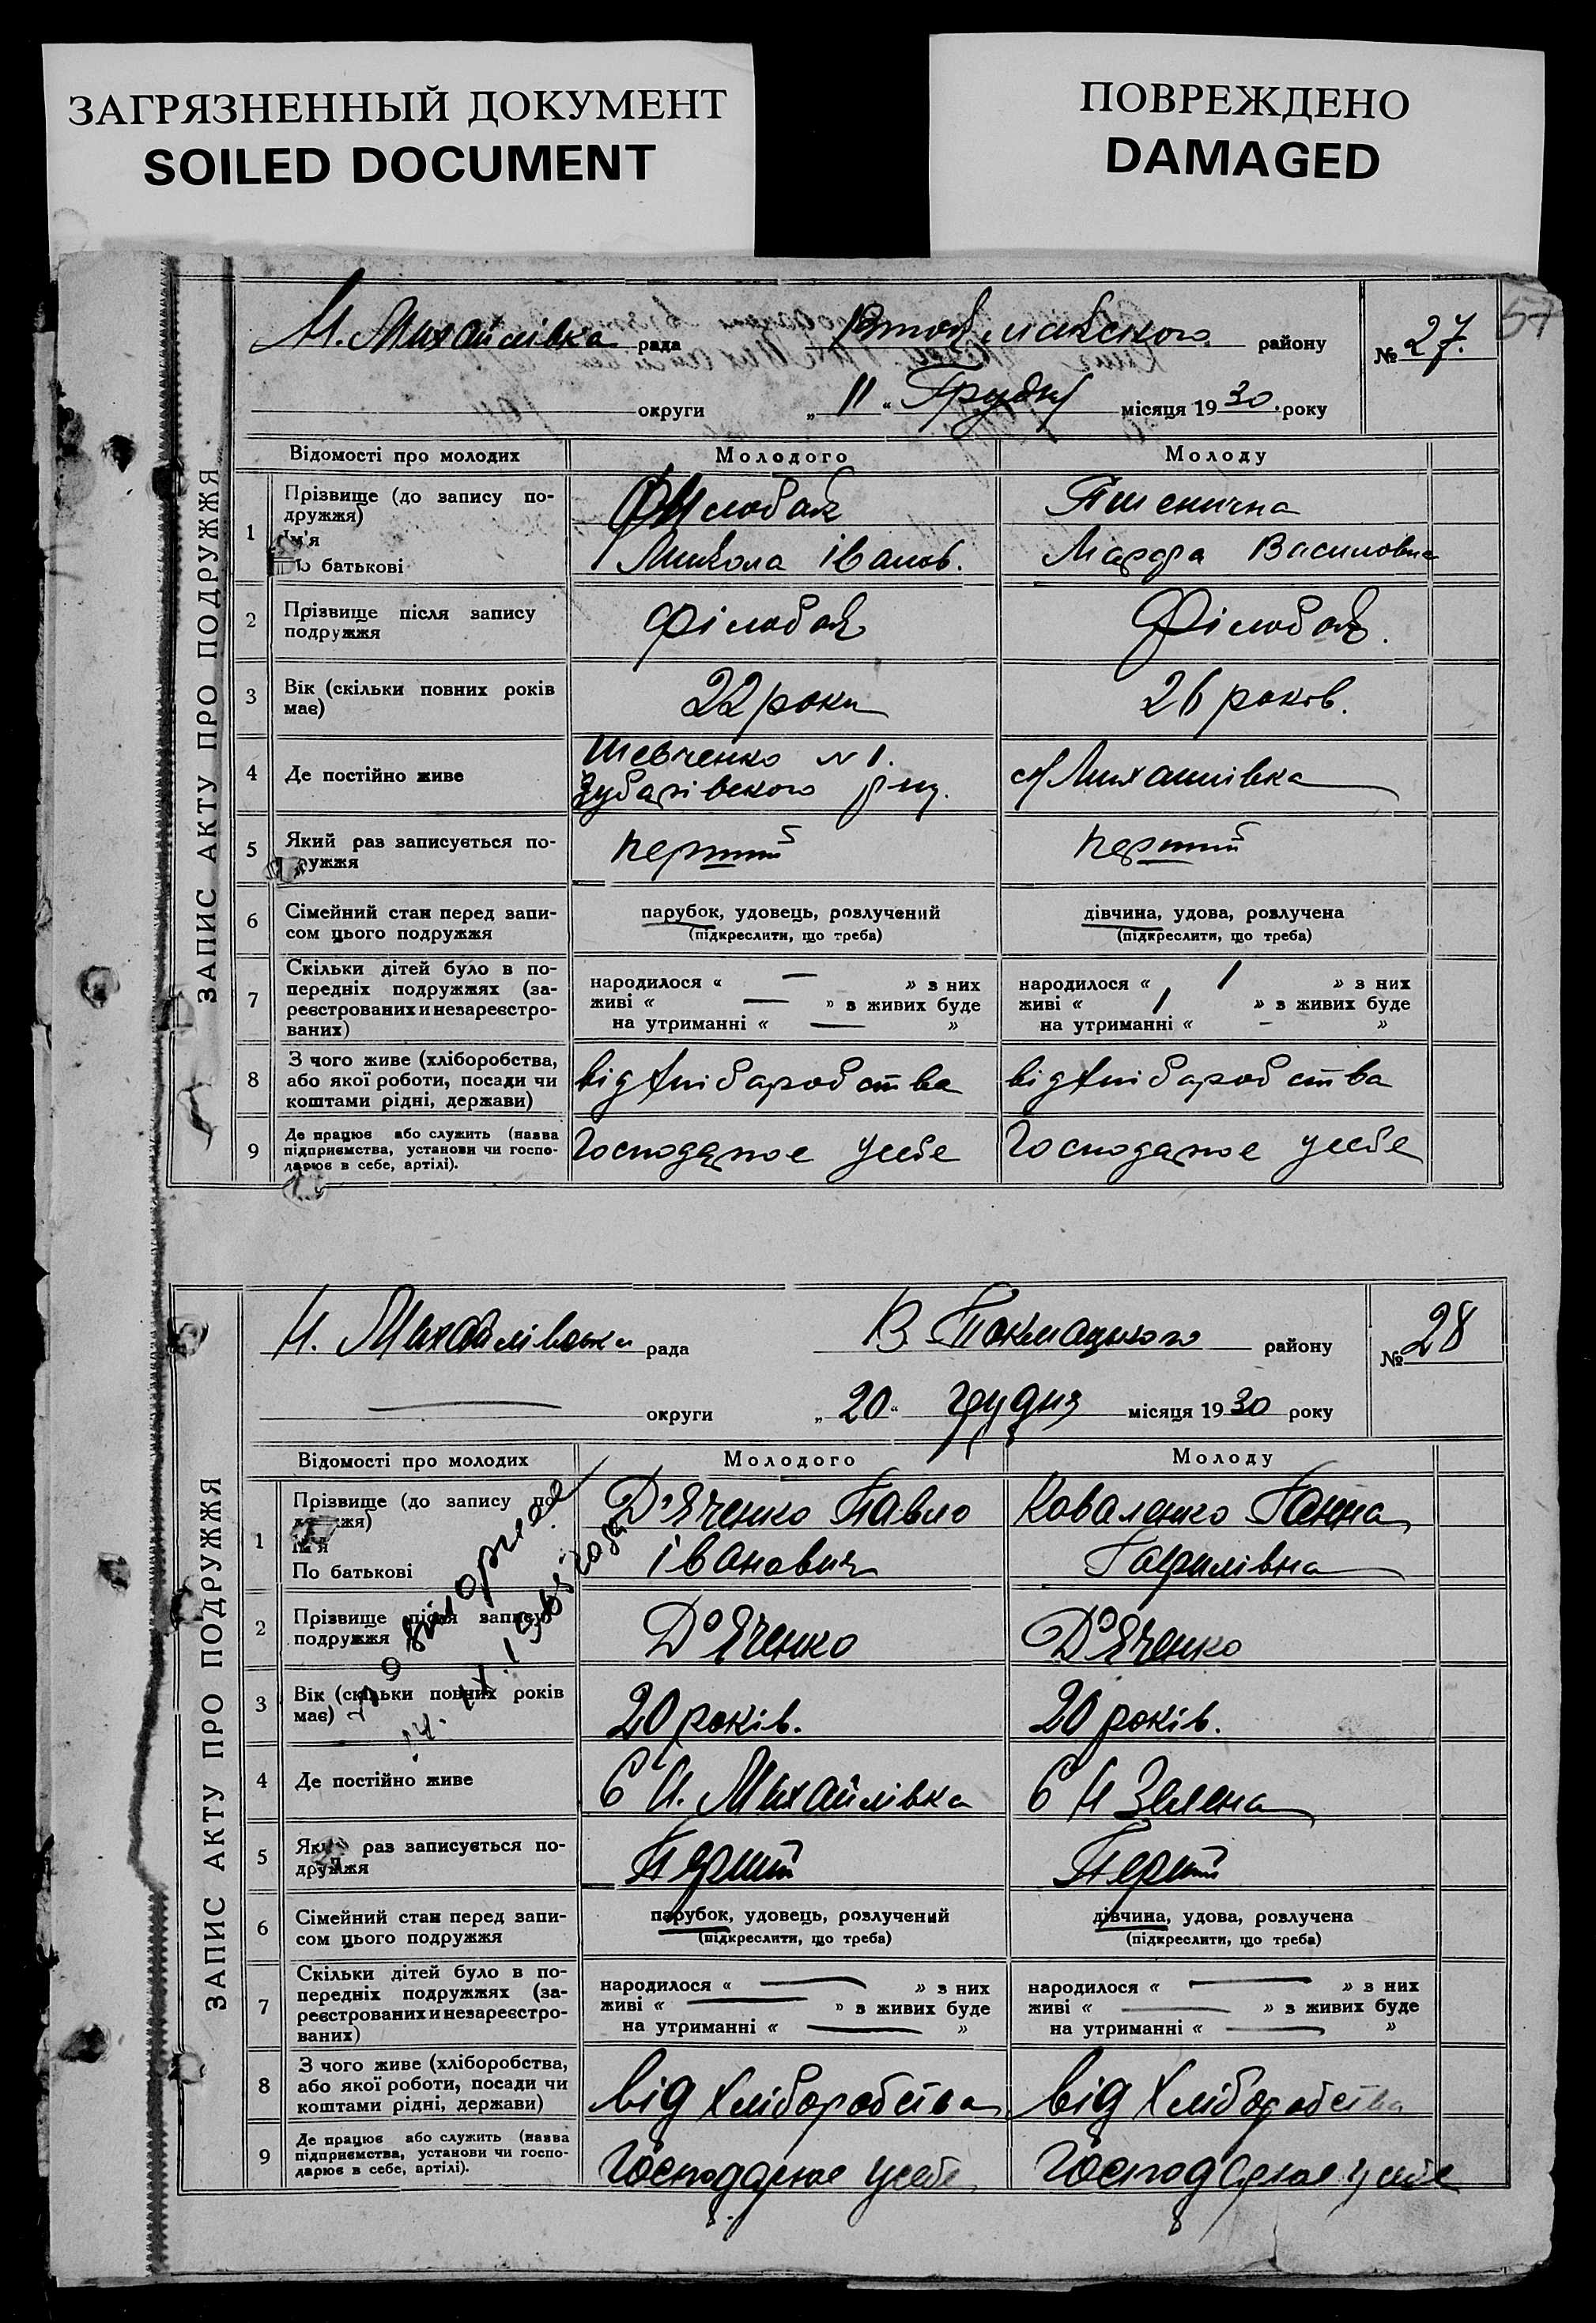 ЗАГРЯЗНЕННЫЙ ДОКУМЕНТ
SOILED DOCUMENT
ПОВРЕЖДЕНО
DAMAGED
57
ЗАПИС АКТУ ПРО ПОДРУЖЖЯ
Н. Михайлівка рада району № 27.
округи „ 11 “ Грудня місяця 1930 .року
Відомості про молодих Молодого Молоду
1 Прізвище (до запису по-
дружжя)
Ім'я
По батькові
Філобок
Микола Іванов.
Пшенична
Марфа Василовна
2 Прізвище після запису
подружжя
Філобок Філобок.
3 Вік (скільки повних років
має)
22 роки 26 років.
4 Де постійно живе
Шевченко N 1.
р-ну.
Н Михайлівка
5 Який раз записується по-
дружжя
перший перший
6 Сімейний стан перед запи-
сом цього подружжя
парубок, удовець, розлучений
(підкреслити, що треба)
дівчина, удова, розлучена
(підкреслити, що треба)
7 Скільки дітей було в по-
передніх подружжях (за-
реєстрованих и незареєстро-
ваних)
народилося « — » з них
живі « — » з живих буде
на утриманні « — »
народилося « 1 » з них
живі « 1 » з живих буде
на утриманні « - »
8 З чого живе (хліборобства,
або якої роботи, посади чи
коштами рідні, держави)
від хліборобства від хліборобства
9 Де працює або служить (назва
підприємства, установи чи госпо-
дарює в себе, артілі).
Господарює у себе Господарює у себе
ЗАПИС АКТУ ПРО ПОДРУЖЖЯ
Н. Михайлівська рада В. Токмацького району № 28
округи „ 20 “ грудня місяця 1930 року
Відомості про молодих Молодого Молоду
1 Прізвище (до запису по-
дружжя)
Ім'я
По батькові
Д'Яченко Павло
Іванович
Коваленко Ганна
Гаврилівна
2 Прізвище після запису
подружжя
Д'Яченко Д'Яченко
3 Вік (скільки повних років
має)
20 років. 20 років.
4 Де постійно живе
С Н. Михайлівка С Н Зелена
5 Який раз записується по-
дружжя
Перший Перший
6 Сімейний стан перед запи-
сом цього подружжя
парубок, удовець, розлучений
(підкреслити, що треба)
дівчина, удова, розлучена
(підкреслити, що треба)
7 Скільки дітей було в по-
передніх подружжях (за-
реєстрованих и незареєстро-
ваних)
народилося « — » з них
живі « — » з живих буде
на утриманні « — »
народилося « — » з них
живі « — » з живих буде
на утриманні « — »
8 З чого живе (хліборобства,
або якої роботи, посади чи
коштами рідні, держави)
від хліборобства від хліборобства
9 Де працює або служить (назва
підприємства, установи чи госпо-
дарює в себе, артілі).
Господарює у себе Господарює у себе